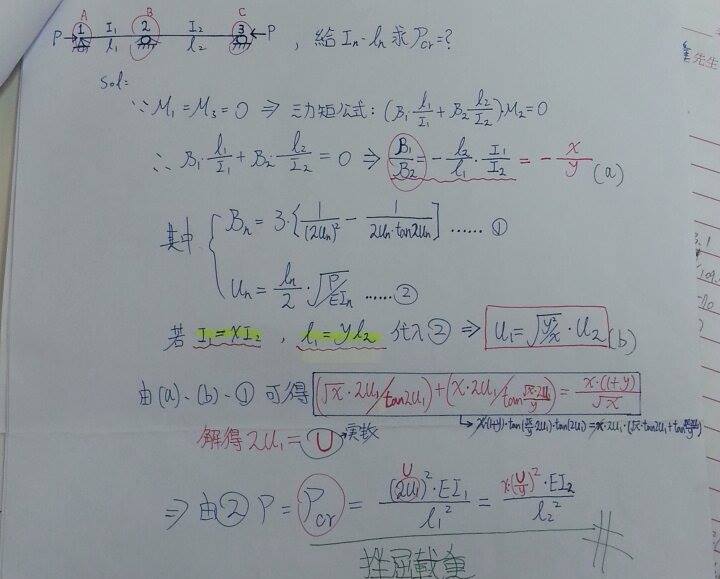 A B C
P→ 1 I₁ 2 I₂ 3 ←P , 給 Iₙ、lₙ 求 Pcr=?
l₁ l₂
Sol:
∵ M₁=M₃=0 ⇒ 三力矩公式: (B₁·l₁/I₁+B₂·l₂/I₂)·M₂=0
∴ B₁·l₁/I₁+B₂·l₂/I₂=0 ⇒ B₁/B₂=-l₂/l₁·I₁/I₂=-x/y (a)
其中 { Bₙ=3·[1/(2uₙ)²-1/(2uₙ·tan2uₙ)] …… ①
uₙ=lₙ/2·√(P/EIₙ) …… ②
若 I₁=xI₂ , l₁=yl₂ 代入② ⇒ u₁=√(y²/x)·u₂ (b)
由(a)、(b)、① 可得 (√x·2u₁/tan2u₁)+(x·2u₁/tan(√x·2u₁/y))=x·(1+y)/√x
解得2u₁=U→實數
⇒ 由② P=Pcr=(2u₁)²·EI₁/l₁²=x·(U/y)²·EI₂/l₂²
U
挫屈載重
先生